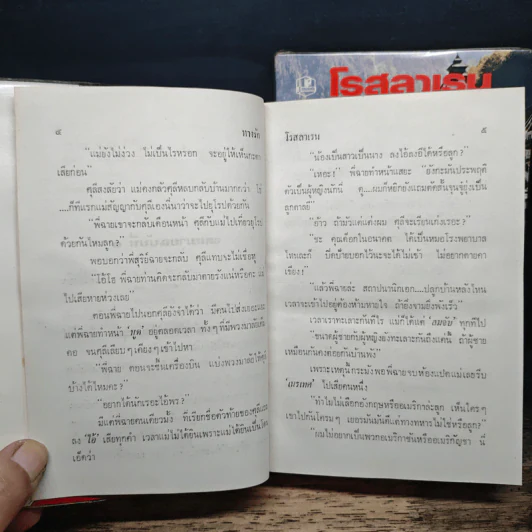 โรสลาเรน
๔ ทางรัก
"แม่ยังไม่ง่วง ไม่เป็นไรหรอก จะอยู่ให้เห็น
เสียก่อน"
คุลีสงสัยว่า แม่คงกลัวคุลีหลบกลับบ้านมากกว่า
....ก็ทีแรกแม่สัญญากับคุลีเองนี่นาว่าจะไปยุโรปด้วยกัน
"พี่ฉายเขาจะกลับเดือนหน้า คุลีกับแม่ไปเที่ยวยุโรป
ด้วยกันไหมลูก?"
พอบอกว่าพี่สุริย์ฉายจะกลับ คุลีแทบจะไม่เชื่อหู
"โอ้โฮ พี่ฉายท่านคิดจะกลับมาตายรังแน่หรือคะ
ไปเสียหายห่วงเลย"
ตอนพี่ฉายไปเยอกคุลียังจำได้ว่า มีคนไปส่ง
แต่พี่ฉายทำหน้า 'ทูด' อยู่ตลอดเวลา ทั้งๆ ที่มีพวงมาลัย
คอ จนคุลีเลียบๆ เคียงๆ เข้าไปหา
"พี่ฉาย ตอนจะขึ้นเครื่องบิน แบ่งพวงมาลัยให้
บ้างได้ไหมคะ?"
"อยากได้นักเรอะไอ้พร?"
มีแต่พี่ฉายคนเดียวมั้ง ที่เรียกชื่อตัวท้ายของคุลี
ลง 'ไอ้' เสียทุกคำ เวลาแม่ไม่ได้ยินเพราะแม่ได้ยินเป็น
เอ็ดว่า
โรสลาเรน ๕
"น้องเป็นสาวเป็นนาง ลงไอ้ลงอีได้หรือลูก?"
"เหอะ! พี่ฉายทำหน้าแสยะ
ตัวเป็นผู้หญิงนักนี่ ดู....ผมก็หยิกยังแถมตัดสั้นจุนจู๋ยังเป็น
ลูกตาลยี"
"ย้าว ถ้ามัวแต่แต่งผม คุลีจะเรียนเก่งเรอะ?"
"ชะ คุณด๊อกในอนาคต ได้เป็นหมอโรงพยาบาล
ไหนละก็ บัดบายบอกไว้นะจะได้ไม่เข้า ไม่อยากตายคา
เขียง!"
"แล้วพี่ฉายล่ะ สถาปนานักเอก....ปลูกบ้านหลังไหน
เวลาจะเข้าไปอยู่ต้องห้ามหายใจ ถ้ายังจามยิ่งพังเร็ว"
เวลาเราทะเลาะกันทีไร แม่ก็ได้แต่ ลมจับ ทุกทีไป
"ขนาดผู้ชายกับผู้หญิงลงทะเลาะกันถึงแดน ถ้าผู้ชาย
เหมือนกันคงต่อยกันบ้านพัง
เพราะเหตุนี้กระมังพอพี่ฉายจบห้องแปดแม่เลยรีบ
'เนรเทศ' ไปเสียคนหนึ่ง
"ทำไมไม่เลือกอังกฤษหรืออเมริกาล่ะลูก เห็นใครๆ
เขาไปกันโครมๆ เยอรมันมันดีแต่ทางทหารไม่ใช่หรือลูก?"
"ผมไม่อยากเป็นพวกอเมริกาชันหรืออเมริกัญชา นี่